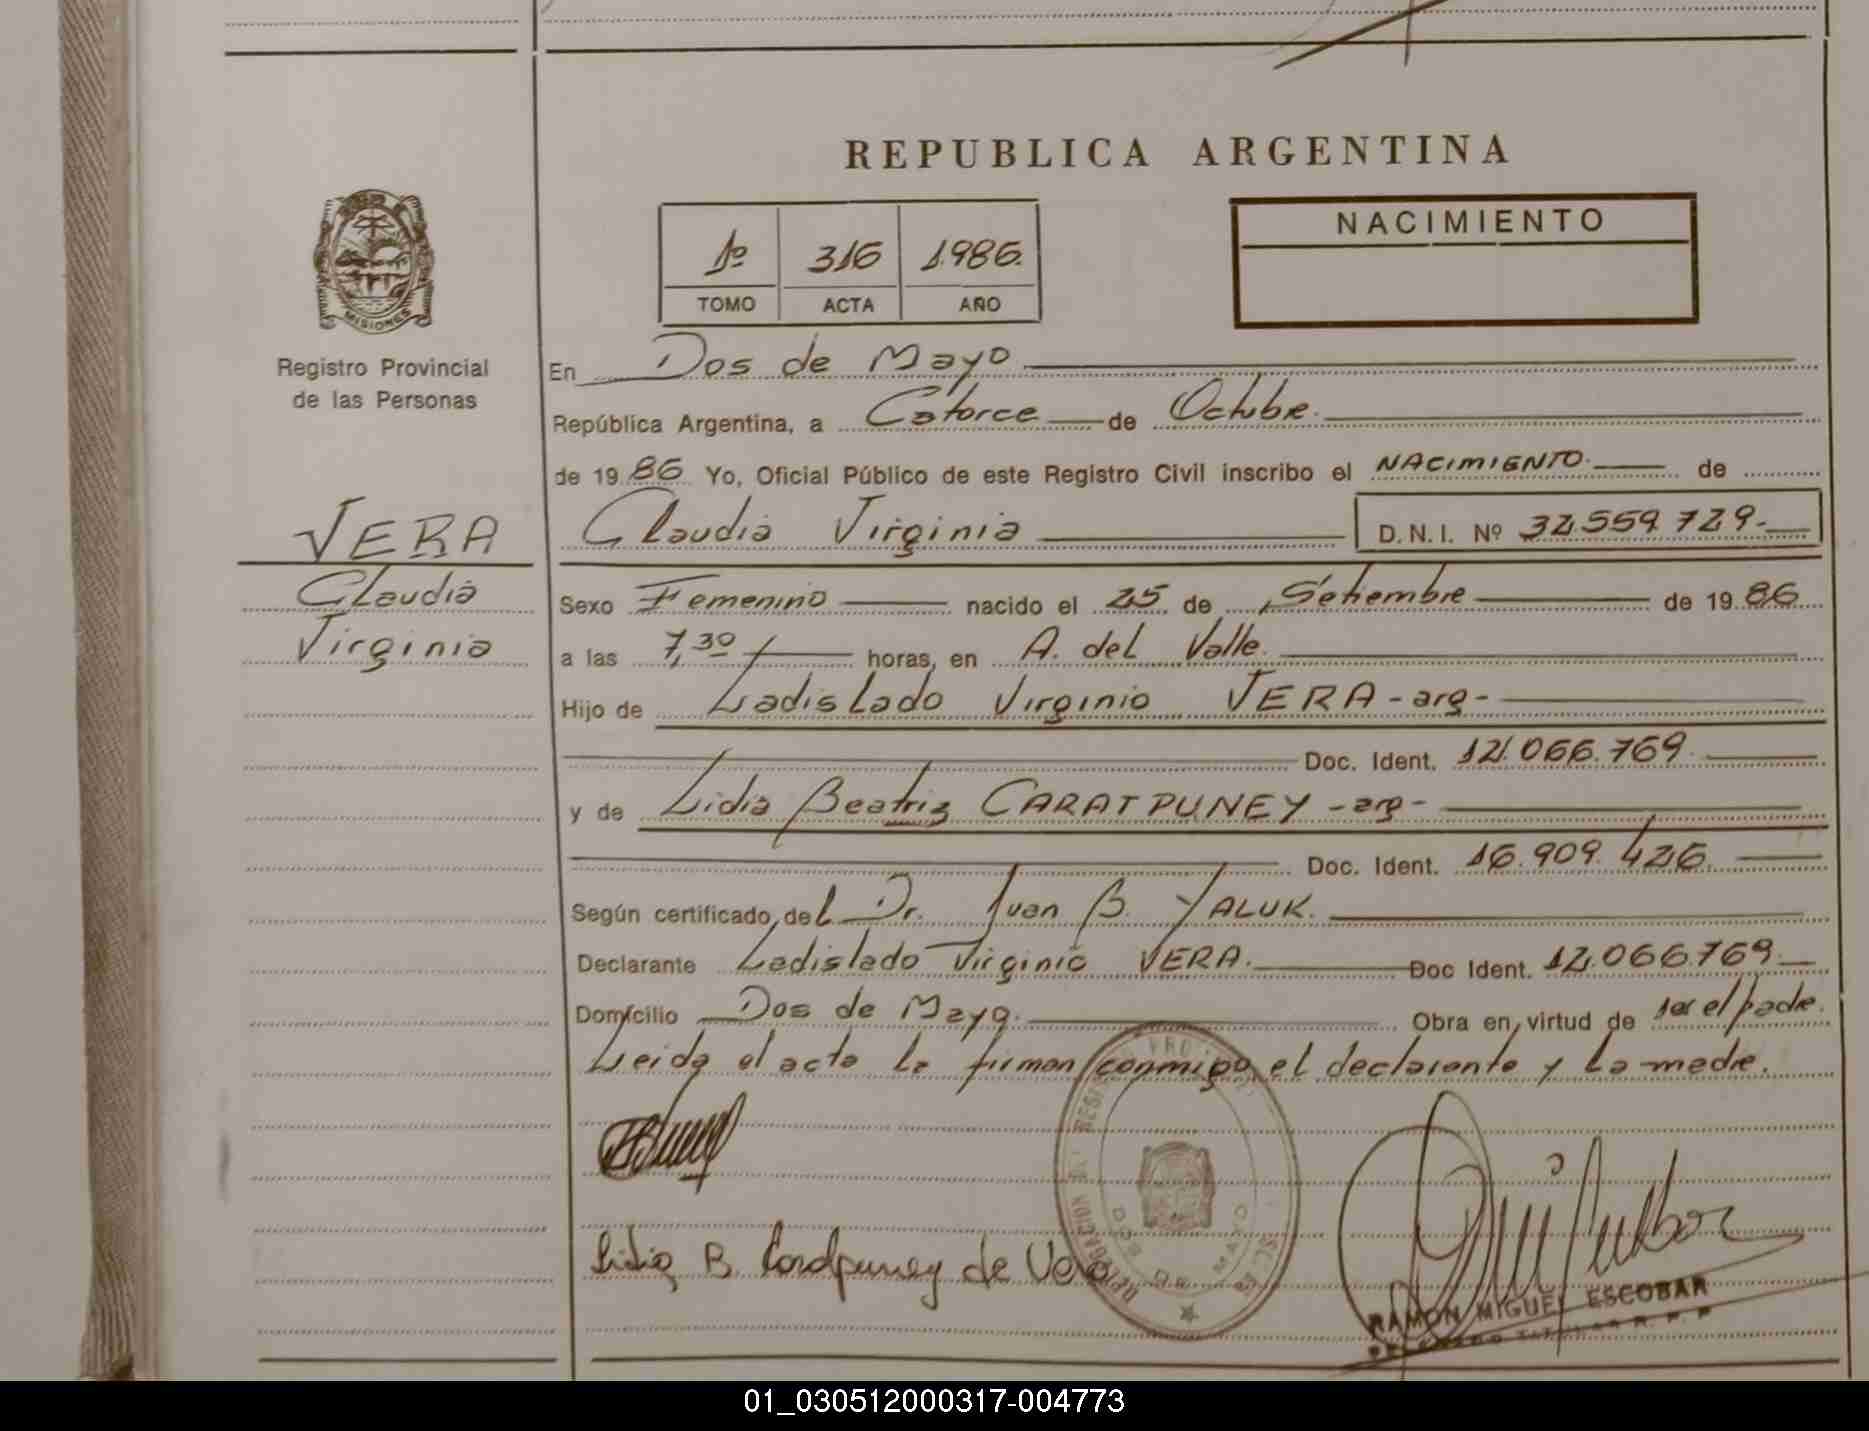 REPUBLICA ARGENTINA
1º 316 1986.
TOMO ACTA AÑO
NACIMIENTO
MISIONES
Registro Provincial
de las Personas
VERA
Claudia
Virginia
En Dos de Mayo
República Argentina, a Catorce de Octubre.
de 19 86 Yo, Oficial Público de este Registro Civil inscribo el NACIMIENTO. de
Claudia Virginia D.N.I. Nº 32.559.729.-
Sexo Femenino nacido el 25 de Setiembre de 19 86
a las 7,30 horas, en A. del Valle.
Hijo de Ladislado Virginio VERA -arg-
Doc. Ident. 12.066.769.
y de Lidia Beatriz CARATPUNEY -arg-
Doc. Ident. 16.909.426.
Según certificado, del Dr. Juan B. YALUK.
Declarante Ladislado Virginio VERA. Doc Ident. 12.066.769.
Domicilio Dos de Mayo. Obra en virtud de ser el padre.
Leida el acta la firman conmigo el declarante y la madre.
Lidia B. de Vera
DOS DE MAYO
RAMON MIGUEL ESCOBAR
01_030512000317-004773